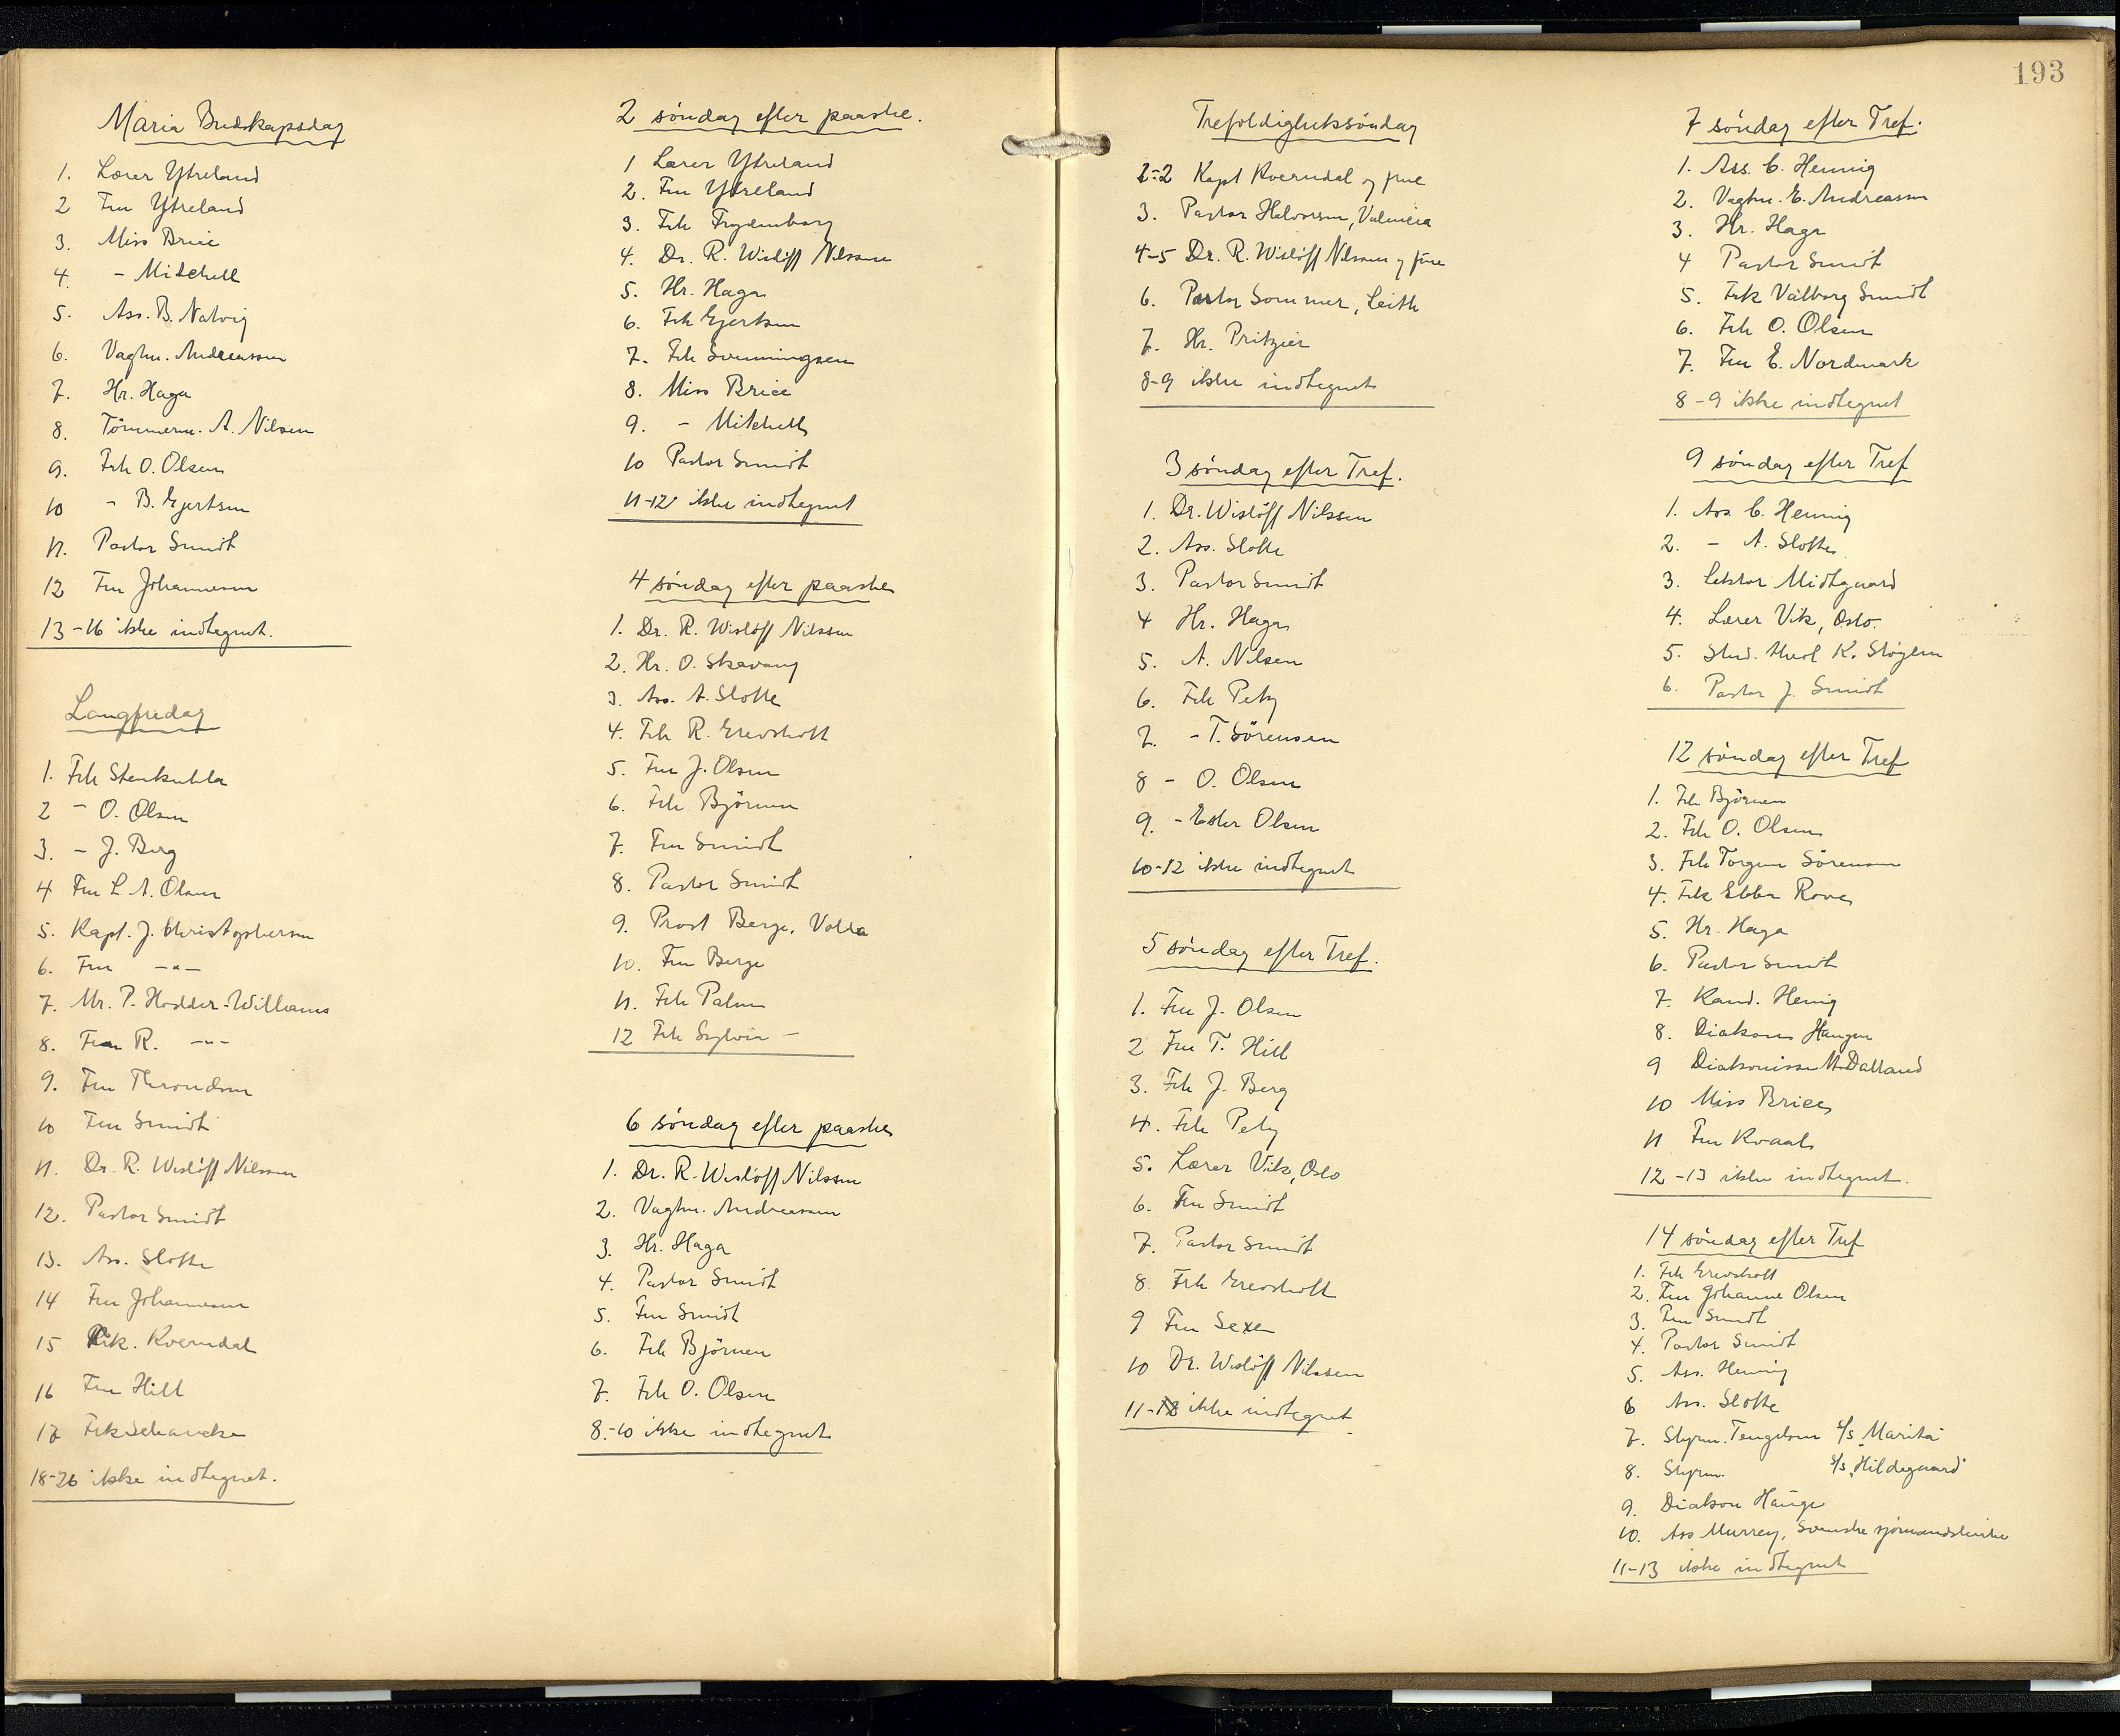 Maria Budskapsdag
1. Lærer Ytreland
2 Fru Ytreland
3. Miss Brice
4. - Mitchell
5. Ass. B. Natvig
6. Vagtm. Andreassen
7. Hr. Haga
8. Tömmerm. A. Nilsen
9. Frk O. Olsen
10 - B. Gjertsen
11. Pastor Smidt
12 Fru Johannesen
13-16 ikke indtegnet.
Langfredag
1. Frk Stenkuhla
2 - O. Olsen
3. - J. Berg
4 Fru L. A. Olsen
5. Kapt. J. Christophersen
6. Fru -"-
7. Mr. P. Hodder-Williams
8. Fru R. -"-
9. Fru Throndsen
10 Fru Smidt
11. Dr. R. Wislöff Nilssen
12. Pastor Smidt
13. Ass. Slotte
14 Fru Johannesen
15 Rik. Kverndal
16 Fru Hill
17 Frk Schancke
18-26 ikke indtegnet.
2 söndag efter paaske.
1 Lærer Ytreland
2. Fru Ytreland
3. Frk Frydenborg
4. Dr. R. Wislöff Nilssen
5. Hr. Haga
6. Frk Gjertsen
7. Frk Svenningsen
8. Miss Brice
9. - Mitchell
10 Pastor Smidt
11-12 ikke indtegnet
4 söndag efter paaske
1. Dr. R. Wislöff Nilssen
2. Hr. O. Skavang
3. Ass. A. Slotte
4. Frk R. Grevskott
5. Fru J. Olsen
6. Frk Björnen
7. Fru Smidt
8. Pastor Smidt
9. Prost Berge, Volda
10. Fru Berge
11. Frk Palm
12 Frk Sylvia -
6 söndag efter paaske
1. Dr. R. Wislöff Nilssen
2. Vagtm. Andreassen
3. Hr. Haga
4. Pastor Smidt
5. Fru Smidt
6. Frk Björnen
7. Frk O. Olsen
8-10 ikke indtegnet
193
Trefoldighetssöndag
1-2 Kapt Kverndal og frue
3. Pastor Halvorsen, Valencia
4-5 Dr. R. Wislöff Nilssen og frue
6. Pastor Sommer, Leith
7. Hr. Pritzier
8-9 ikke indtegnet
3 söndag efter Tref.
1. Dr. Wislöff Nilssen
2. Ass. Slotte
3. Pastor Smidt
4 Hr. Haga
5. A. Nilsen
6. Frk Pety
7. - T. Sörensen
8 - O. Olsen
9. - Ester Olsen
10-12 ikke indtegnet
5 söndag efter Tref.
1. Fru J. Olsen
2 Fru T. Hill
3. Frk J. Berg
4. Frk Pety
5. Lærer Vik, Oslo
6. Fru Smidt
7. Pastor Smidt
8. Frk Grevskott
9 Fru Sexe
10 Dr. Wislöff Nilssen
11-12 ikke indtegnet
7 söndag efter Tref.
1. Ass. C. Hennig
2. Vagtm. E. Andreassen
3. Hr. Haga
4 Pastor Smidt
5. Frk Valborg Smidt
6. Frk O. Olsen
7. Fru E. Nordmark
8-9 ikke indtegnet
9 söndag efter Tref
1. Ass C. Hennig
2. - A. Slotte
3. Lektor Midtgaard
4. Lærer Vik, Oslo.
5. Stud. theol K. Støylen
6. Pastor J. Smidt
12 söndag efter Tref
1. Frk Björnen
2. Frk O. Olsen
3. Frk Torgun Sörensen
4. Frk Ebba Rove
5. Hr. Haga
6. Pastor Smidt
7. Kand. Henig
8. Diakon Haugen
9 Diakonisse M. Dalland
10 Miss Brice
11 Fru Kvaal
12-13 ikke indtegnet.
14 söndag efter Tref
1. Frk Grevskott
2. Fru Johanne Olsen
3. Fru Smidt
4. Pastor Smidt
5. Ass. Hennig
6 Ass. Slotte
7. Styrm. Tengelsen s/s "Marita"
8. Styrm. s/s "Hildegaard"
9. Diakon Hauge
10. Ass Murrey, Svenske sjömandskirke
11-13 ikke indtegnet